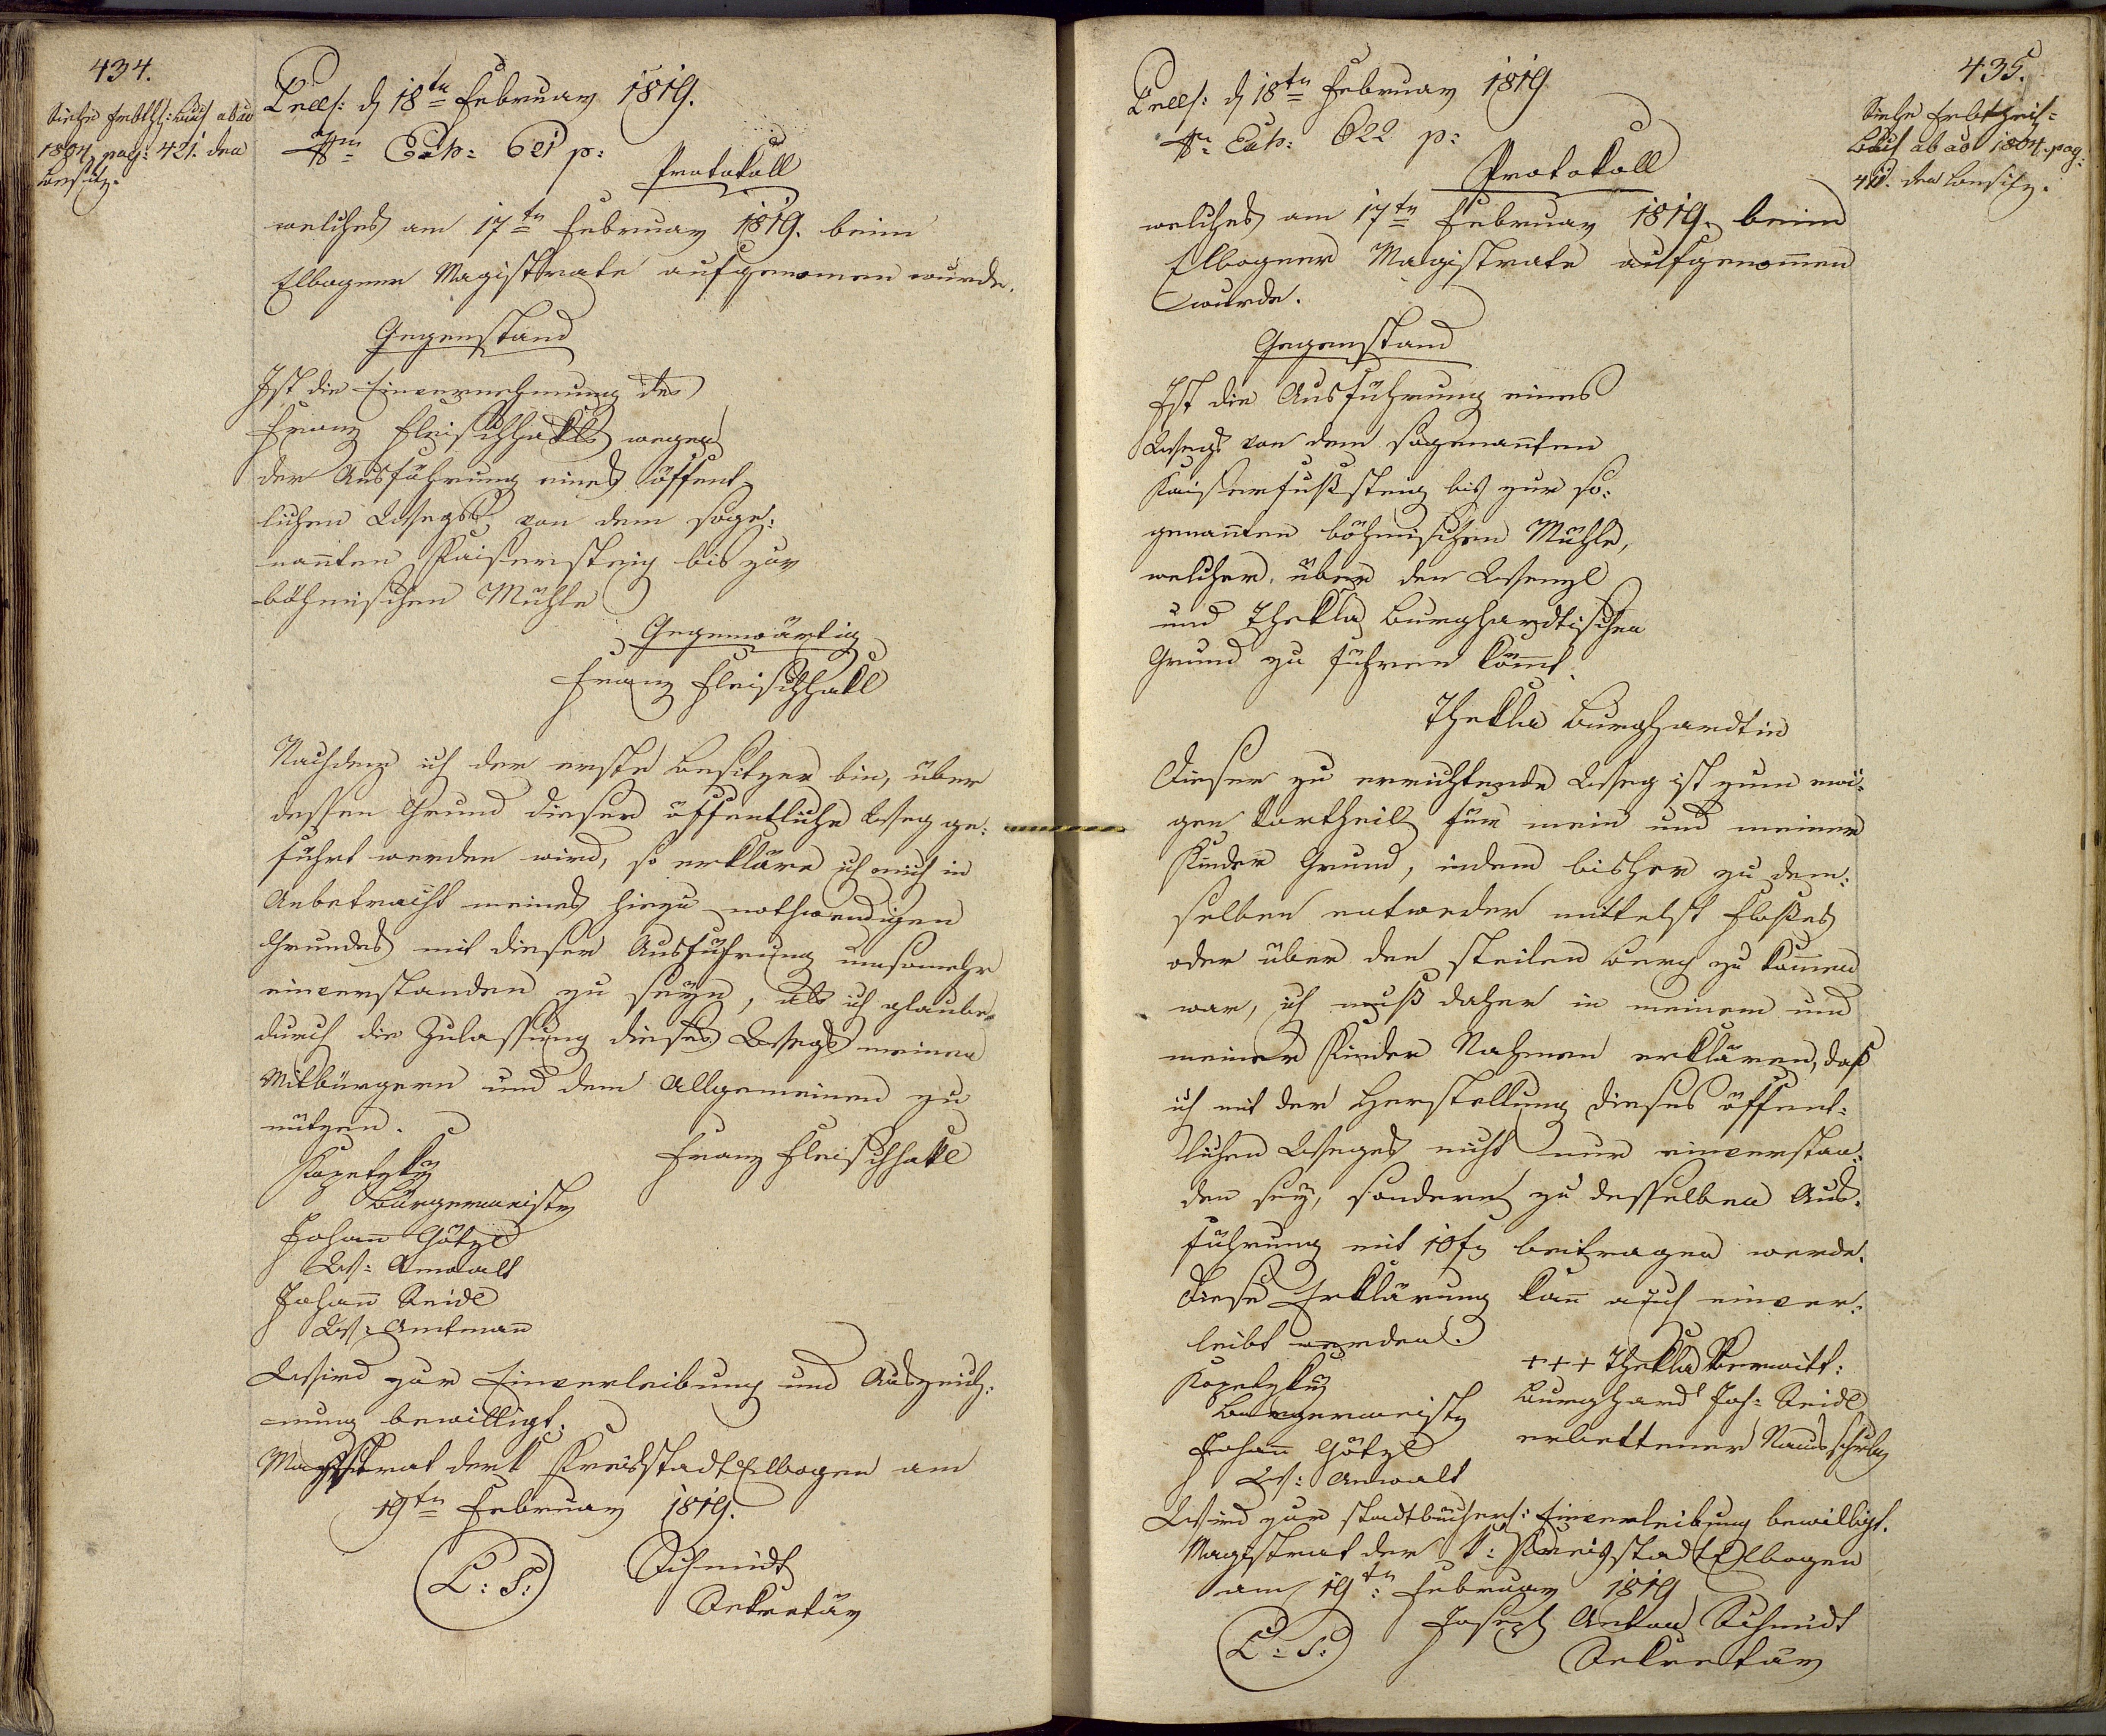 434.
Siehe Erbthl: Buch ab ao
1804 pag: 421. den
Besitz.
Præs: d 18ten Februar 1819.
Nro Exh: 621 p:
Protokoll
welches am 17ten Februar 1819. beim
Elbogner Magistrate aufgenomen wurde.
Gegenstand
Ist die Einvernehmung des
Franz Fleischhakls wegen
der Ausführung eines öffent-
lichen Wegs, von dem soge:
nanten Kaisersteig bis zur
böhmischen Mühle
Gegenwärtig
Franz Fleischhakl
Nachdem ich der erste Besitzer bin, über
dessen Grund dieser öffentliche Weg ge:
führt werden wird, so erkläre ich mich in
Anbetracht meines hiezu nothwendigen
Grundes mit dieser Ausführung umsomehr
einverstanden zu seyn, als ich glaube
durch die Zulassung dieses Wegs meinen
Mitbürgern und dem Allgemeinen zu
nützen.
Franz Fleischhakl
Kopetzky
Bürgermeister
Johann Götzl
W: Anwalt
Johann Seidl
W: Amtmann
Wird zur Einverleibung und Auszeich:
nung bewilligt.
Magistrat der k Kreisstadt Elbogen am
19ten Februar 1819.
L: S:
Schmidt
Sekretär
435.
Siehe Erbtheil=
Buch ab ao 1804. pag:
den Besitz.
Præs: d 18ten Februar 1819
Nro Exh: 622 p:
Protokoll
welches am 17ten Februar 1819. beim
Elbogner Magistrate aufgenommen
wurde.
Gegenstand
Ist die Ausführung eines
Wegs von dem sogenannten
Kaiserfußsteig bis zur so:
genannten böhmischen Mühle,
welcher über den Wenzl
und Thekla Burghardtischen
Grund zu führen kömmt.
Thekla Burghardtin
Dieser zu errichtende Weg ist zum ewi:
gen Vortheil für mein und meiner
Kinder Grund, indem bisher zu dem:
selben entweder mittelst Floßes
oder über den steilen Berg zu kommen
war, ich muß daher in meinem und
meiner Kinder Nahmen erklären, daß
ich mit der Herstellung dieses öffent:
lichen Weges nicht nur einverstan:
den sey, sondern zu desselben Aus:
führung mit 10 fr beitragen werde.
Diese Erklärung kann auch einver:
leibt werden.
+++ Thekla Verwitt:
Burghard Joh: Seidl
erbettener Namschreiber
Kopetzky
Burgermeister
Johann Götzl
W: Anwalt
Wird zur stadtbücherl: Einverleibung bewilligt.
Magistrat der k: Kreisstadt Elbogen
am 19ten Februar 1819
L: S:
Joseph Anton Schmidt
Sekretär